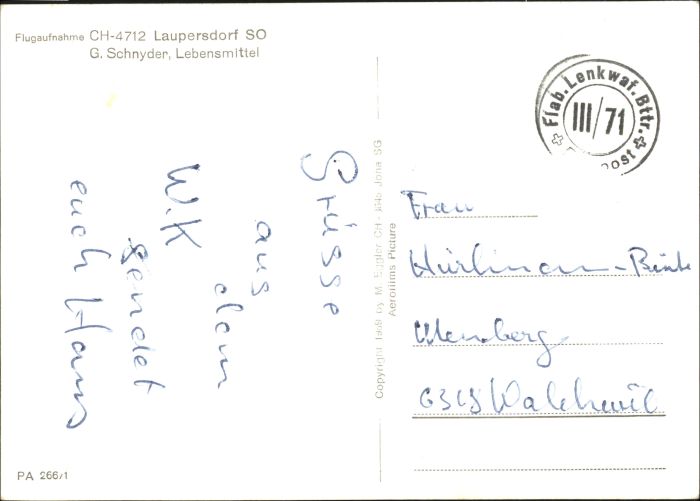 Flugaufnahme CH-4712 Laupersdorf SO
G. Schnyder, Lebensmittel
Flab. Lenkwaf. Bttr.
III/71
Grüsse
aus dem
W.K
sendet
euch Hans
Copyright 1989 by M. Eggler, CH - 8645 Jona SG
Aerofilms Picture
Frau
Hürlimann-
6318 Walchwil
PA 266/1